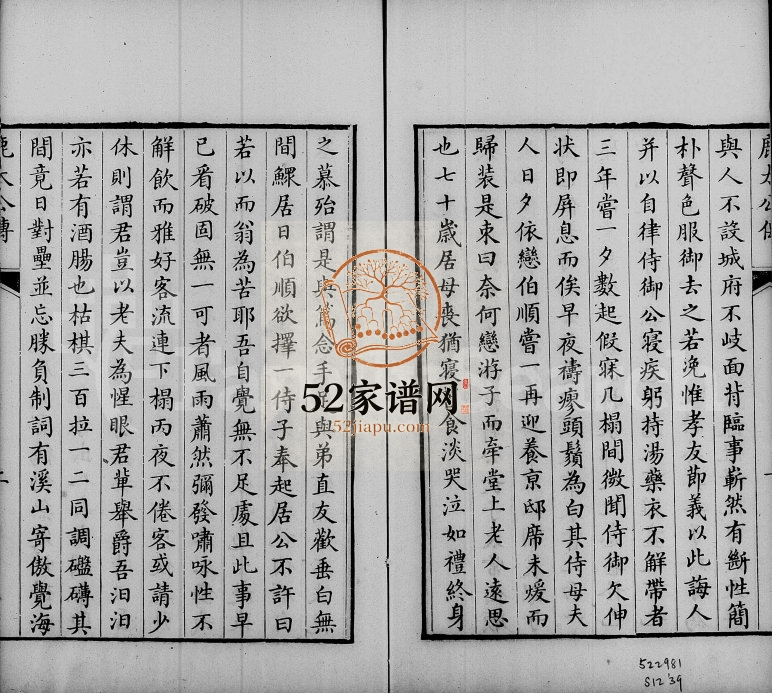 鹿太公傳
一
與人不設城府不岐面背臨事嶄然有斷性簡
朴聲色服御去之若浼惟孝友節義以此誨人
并以自律侍御公寢疾躬持湯藥衣不解帶者
三年嘗一夕數起假寐几榻間微聞侍御欠伸
状即屏息而俟早夜禱瘳頭鬚為白其侍母夫
人日夕依戀伯順嘗一再迎養京邸席未煖而
歸装是束曰奈何戀游子而牽堂上老人遠思
也七十歲居母喪猶寢 食淡哭泣如禮終身
之慕殆謂是與篤念手足與弟直友歡垂白無
間鰥居日伯順欲擇一侍子奉起居公不許曰
若以而翁為苦耶吾自覺無不足處且此事早
已看破固無一可者風雨蕭然彌發嘯咏性不
解飲而雅好客流連下榻丙夜不倦客或請少
休則謂君豈以老夫為惺眼君軰舉爵吾汨汨
亦若有酒腸也枯棋三百拉一二同調礧磚其
間竟日對壘並忘勝負制詞有溪山寄傲覺海
鹿太公傳
二
52家谱网
52jiapu.com
522981
S12'39